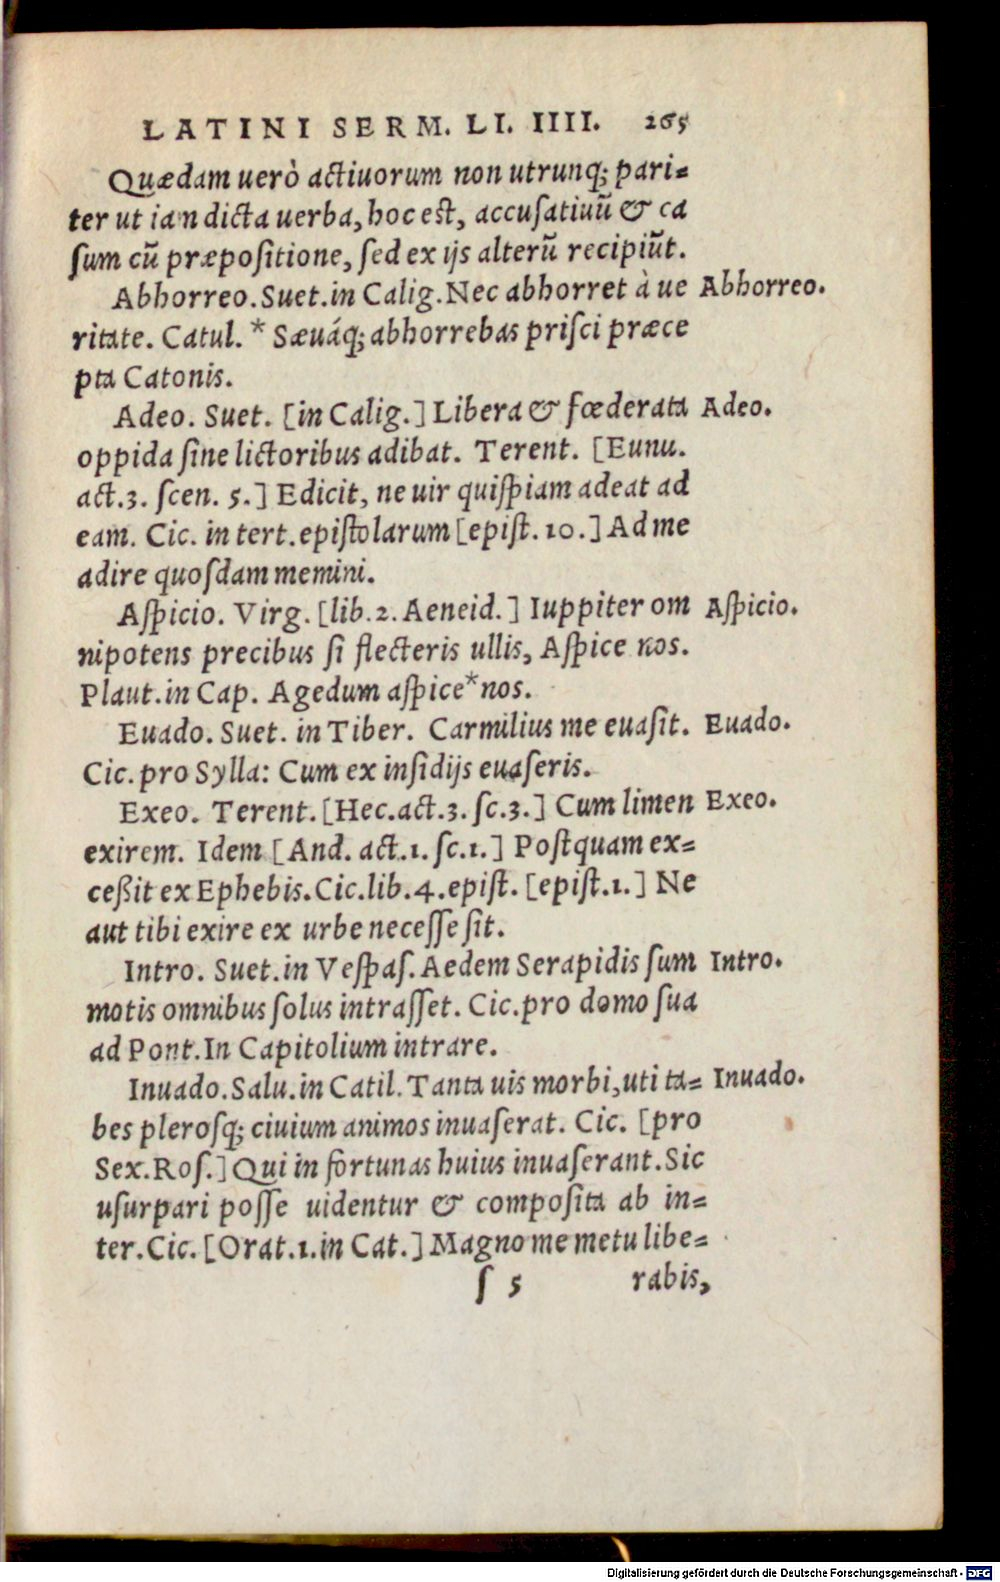 LATINI SERM. LI. IIII. 265
Quædam uerò actiuorum non utrunq; pari=
ter ut ian dicta uerba, hoc est, accusatiuũ & ca
sum cũ præpositione, sed ex ijs alterũ recipiũt.
Abhorreo. Suet. in Calig. Nec abhorret à ue Abhorreo.
ritate. Catul. * Sæuáq; abhorrebas prisci præce
pta Catonis.
Adeo. Suet. [in Calig.] Libera & fœderata Adeo.
oppida sine lictoribus adibat. Terent. [Eunu.
act. 3. scen. 5.] Edicit, ne uir quispiam adeat ad
eam. Cic. in tert. epistolarum [epist. 10.] Ad me
adire quosdam memini.
Aspicio. Virg. [lib. 2. Aeneid.] Iuppiter om Aspicio.
nipotens precibus si flecteris ullis, Aspice nos.
Plaut. in Cap. Agedum aspice * nos.
Euado. Suet. in Tiber. Carmilius me euasit. Euado.
Cic. pro Sylla: Cum ex insidijs euaseris.
Exeo. Terent. [Hec. act. 3. sc. 3.] Cum limen Exeo.
exirem. Idem [And. act. 1. sc. 1.] Postquam ex=
ceßit ex Ephebis. Cic. lib. 4. epist. [epist. 1.] Ne
aut tibi exire ex urbe necesse sit.
Intro. Suet. in Vespas. Aedem Serapidis sum Intro.
motis omnibus solus intrasset. Cic. pro domo sua
ad Pont. In Capitolium intrare.
Inuado. Salu. in Catil. Tanta uis morbi, uti ta= Inuado.
bes plerosq; ciuium animos inuaserat. Cic. [pro
Sex. Ros.] Qui in fortunas huius inuaserant. Sic
usurpari posse uidentur & composita ab in=
ter. Cic. [Orat. 1. in Cat.] Magno me metu libe=
s 5 rabis,
Digitalisierung gefördert durch die Deutsche Forschungsgemeinschaft - DFG